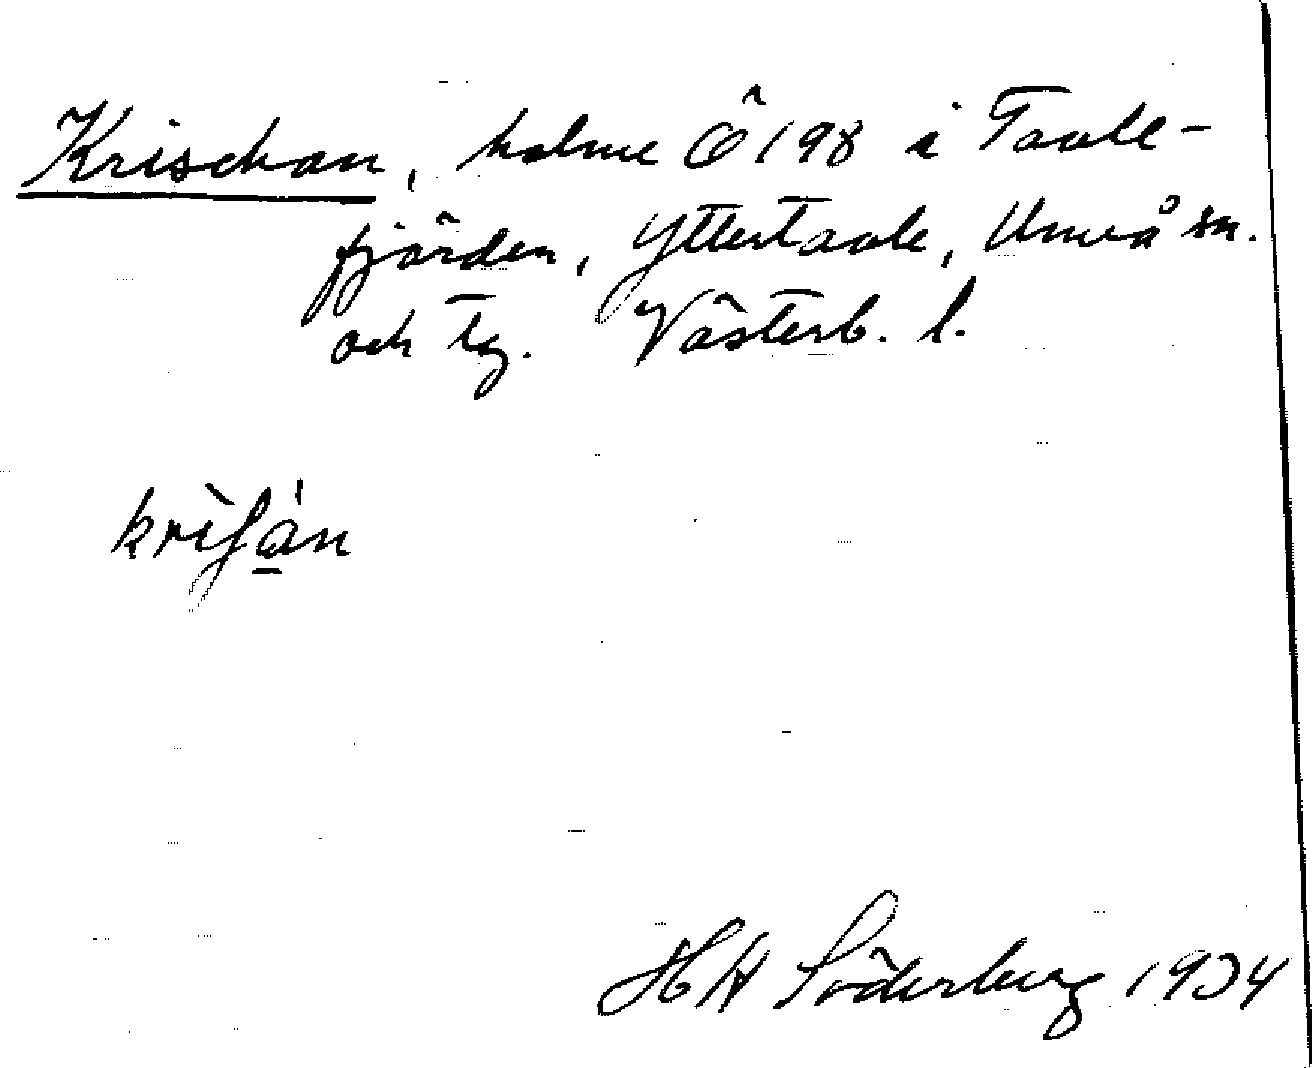 Krischan, holme Ö 198 i Tavle-
fjärden, Yttertavle, Umeå sn.
och tg. Västerb. l.
krìʃa̲̍n
H Söderberg 1934